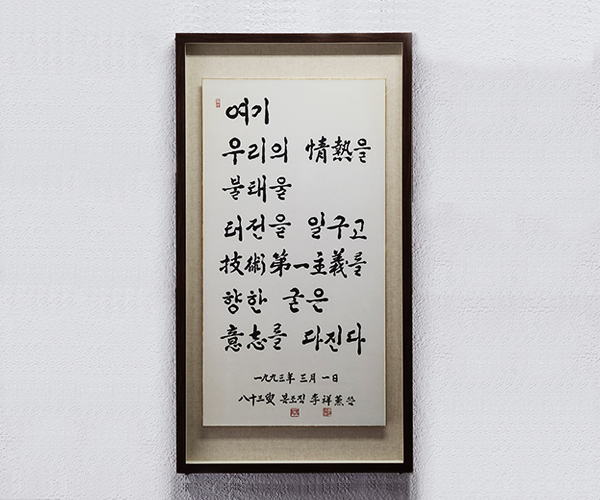 여기
우리의 情熱을
불태울
터전을 일구고
技術第一主義를
향한 굳은
意志를 다진다
一九九三年 三月 一日
八十三叟